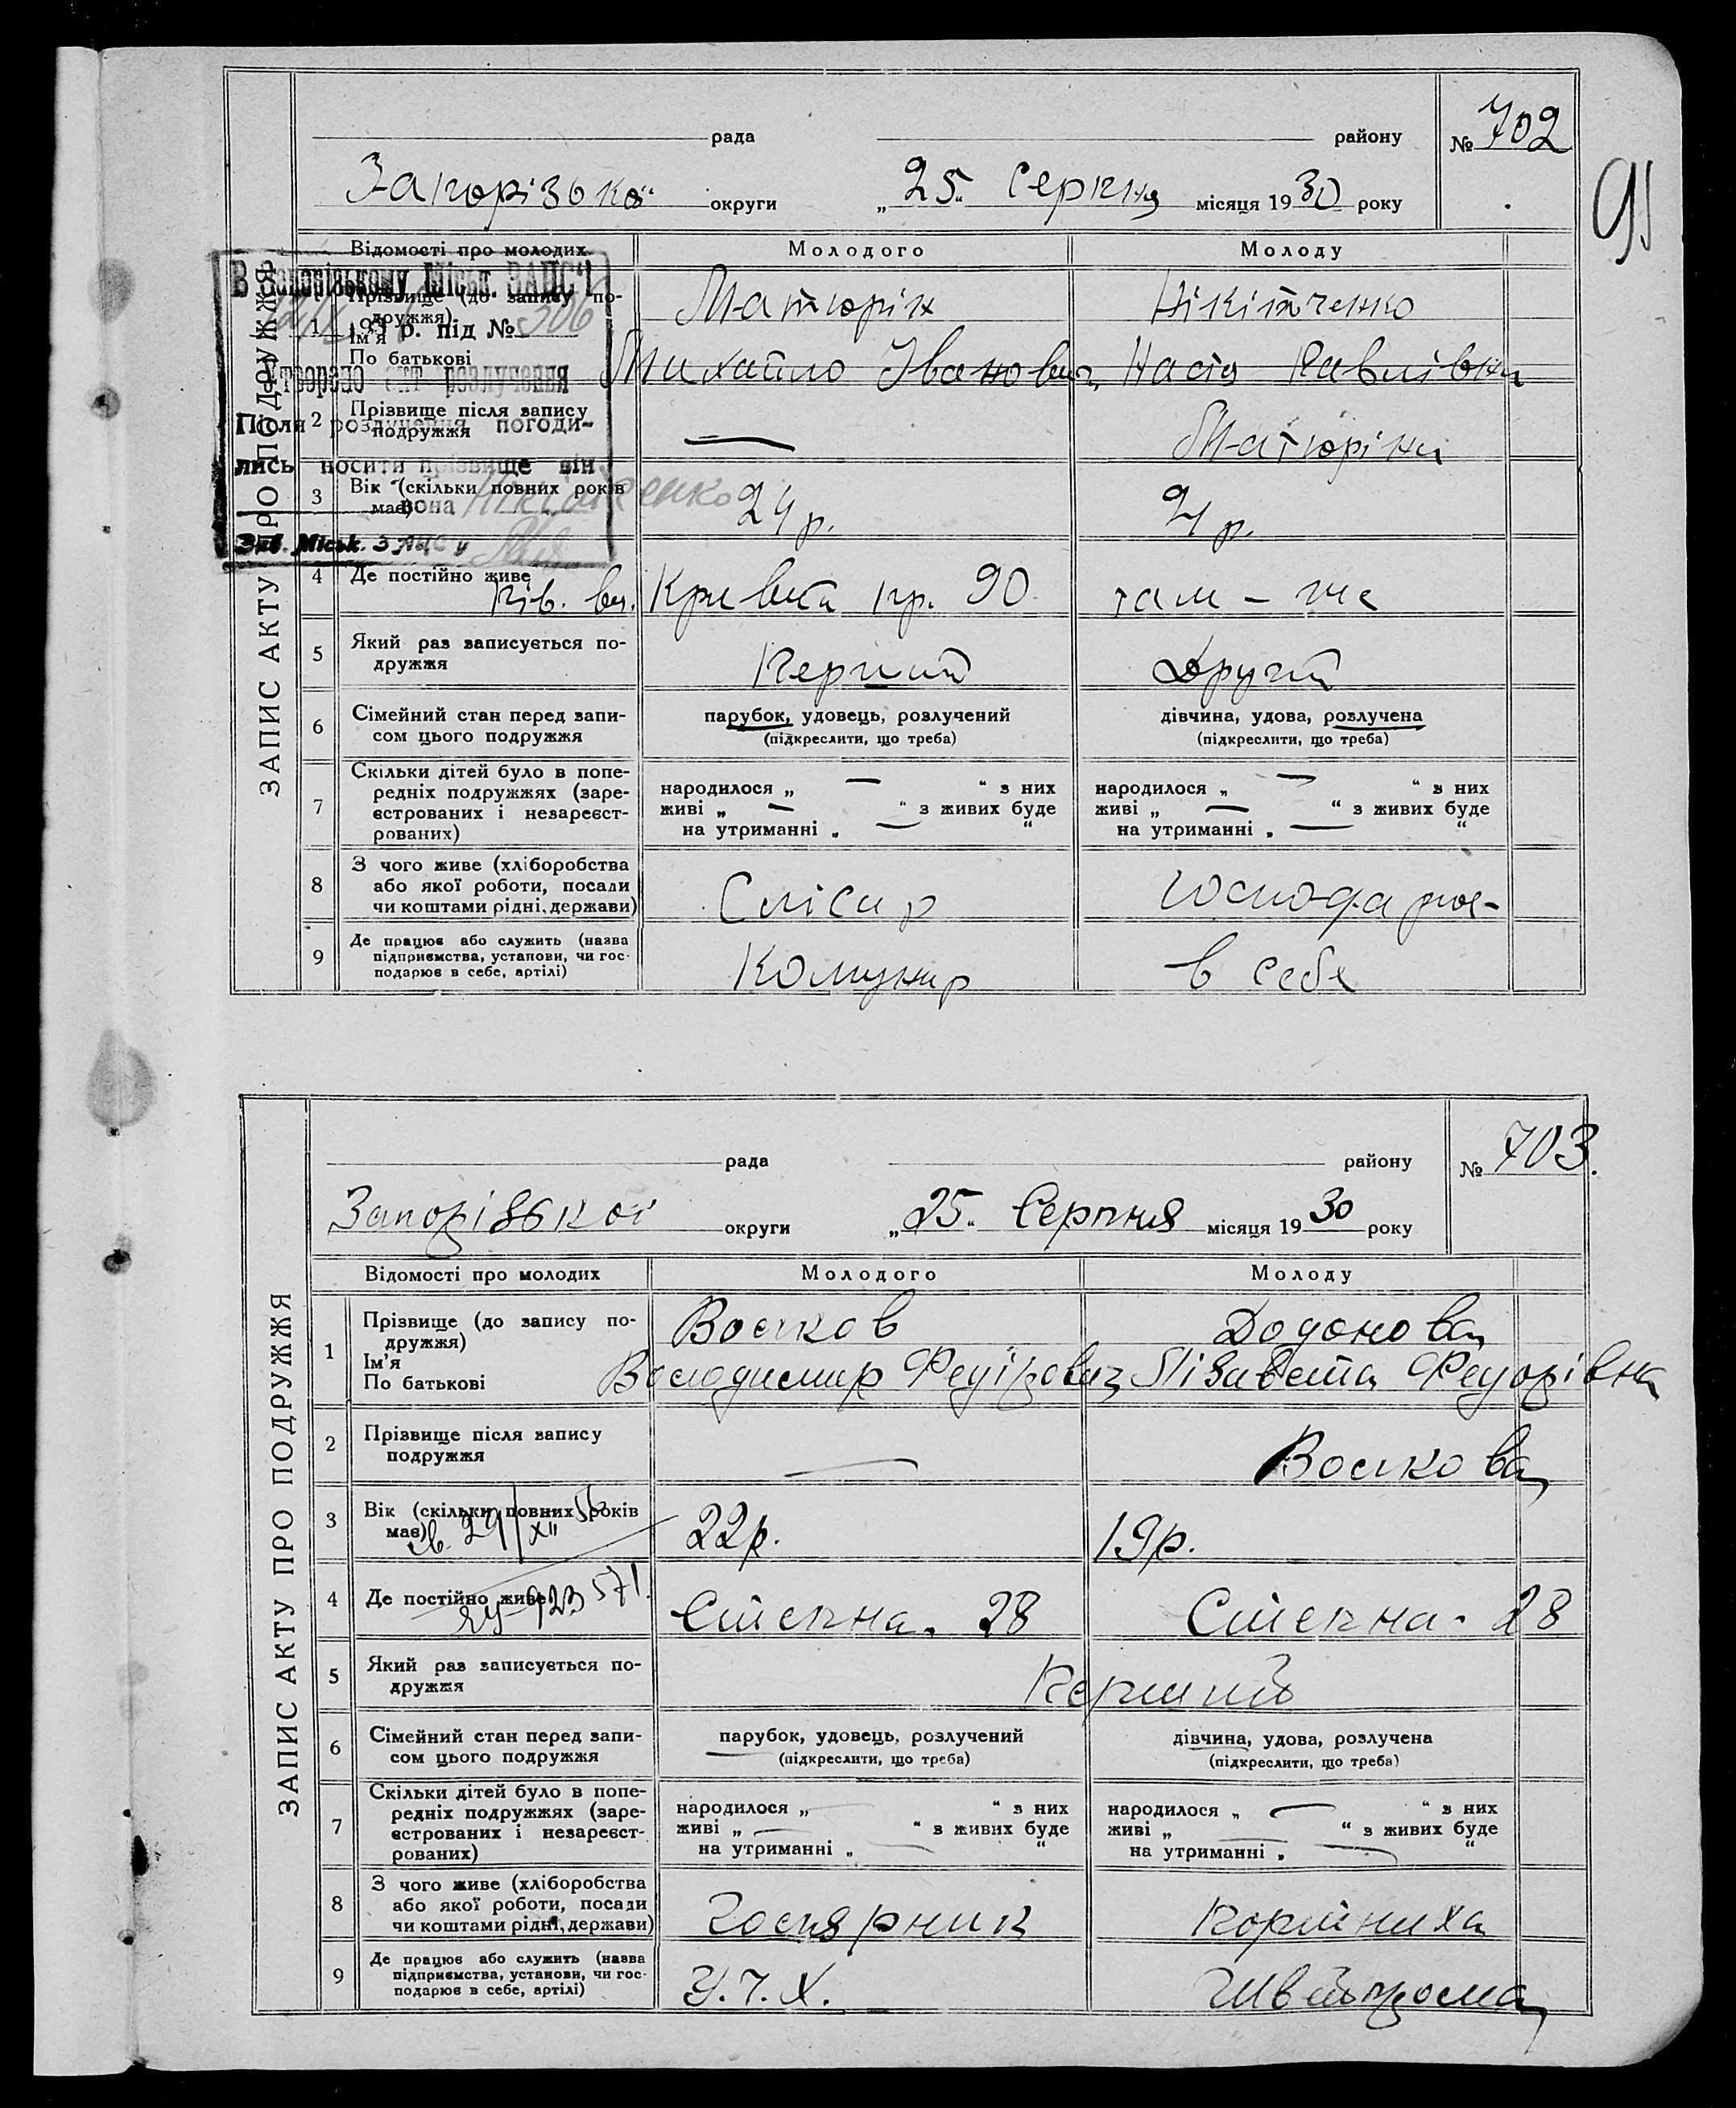 ЗАПИС АКТУ ПРО ПОДРУЖЖЯ
рада району № 702
91
Запорізької округи „25“ Серпня місяця 1930 року
Відомості про молодих Молодого Молоду
В Запорізькому Міськ. ЗАПС'І
193 р. під № 306
Утворено акт розлучення
Після розлучення погоди-
лись носити прізвище він
вона Нікітченко
Зав. Міськ. ЗАПС'у
1 Прізвище (до запису по-
дружжя) Матюрін Нікітченко
Ім'я
По батькові Михайло Іванович Настя Павлівна
2 Прізвище після запису
подружжя — Матюріна
3 Вік (скільки повних років
має) 24 р. 21 р.
4 Де постійно живе Крива пр. 90 там - же
5 Який раз записується по-
дружжя Перший Другий
6 Сімейний стан перед запи-
сом цього подружжя
парубок, удовець, розлучений дівчина, удова, розлучена
(підкреслити, що треба) (підкреслити, що треба)
7 Скільки дітей було в попе-
редніх подружжях (заре-
єстрованих і незареєст-
рованих)
народилося „ — “ з них народилося „ — “ з них
живі „ — “ з живих буде живі „ — “ з живих буде
на утриманні „ — “ на утриманні „ — “
8 З чого живе (хліборобства
або якої роботи, посади
чи коштами рідні, держави) Слісар господарює-
9 Де працює або служить (назва
підприємства, установи, чи гос-
подарює в себе, артілі) Комунар в себе
ЗАПИС АКТУ ПРО ПОДРУЖЖЯ
рада району № 703.
Запорізької округи „25“ Серпня місяця 1930 року
Відомості про молодих Молодого Молоду
1 Прізвище (до запису по-
дружжя) Восков Додонова
Ім'я
По батькові Володимир Федірович Лізавета Федорівна
2 Прізвище після запису
подружжя — Воскова
3 Вік (скільки повних років
має) 22р. 19р.
св. 29/XII 56
4 Де постійно живе Степна. 28 Степна. 28
923571.
5 Який раз записується по-
дружжя Перший
6 Сімейний стан перед запи-
сом цього подружжя
парубок, удовець, розлучений дівчина, удова, розлучена
(підкреслити, що треба) (підкреслити, що треба)
7 Скільки дітей було в попе-
редніх подружжях (заре-
єстрованих і незареєст-
рованих)
народилося „ — “ з них народилося „ — “ з них
живі „ — “ з живих буде живі „ — “ з живих буде
на утриманні „ — “ на утриманні „ — “
8 З чого живе (хліборобства
або якої роботи, посади
чи коштами рідні, держави) Столярник Кормниха
9 Де працює або служить (назва
підприємства, установи, чи гос-
подарює в себе, артілі) У.Т.Х. Швейпрома